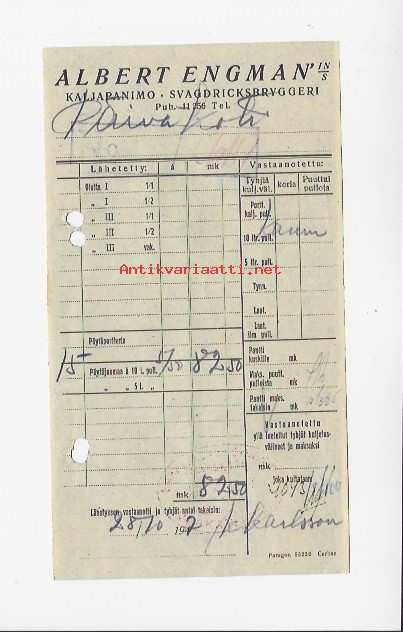 ALBERT ENGMAN' IN/S
KALJAPANIMO · SVAGDRICKSBRYGGERI
Puh. 11 256 Tel.
Päiväkoti
Lähetetty: á mk
Olutta I 1/1
„ I 1/2
„ III 1/1
„ III 1/2
„ III vak.
Pöytäporteria
15 Pöytäjuomaa à 10 l. pull. 5/50 82,50
„ 5 l. „
mk 82,50
Vastaanotettu:
Tyhjiä kulj.väl. koria Puuttui pulloja
Portt. kulj. pull.
10 ltr. pull.
5 ltr. pull.
Tynn.
Laat.
Laat. ilm pull.
Pantti kuskille mk
Maks. puutt. pulloista mk
Pantti maks. takaisin mk
Vastaanotettu
yllä luetellut tyhjät kuljetus-
välineet ja maksuksi
mk.
joka kuitataan
Lähetyksen vastaanotti ja tyhjät antoi takaisin:
28/10 194
Karlsson
Paragon Carbac
Antikvariaatti.net